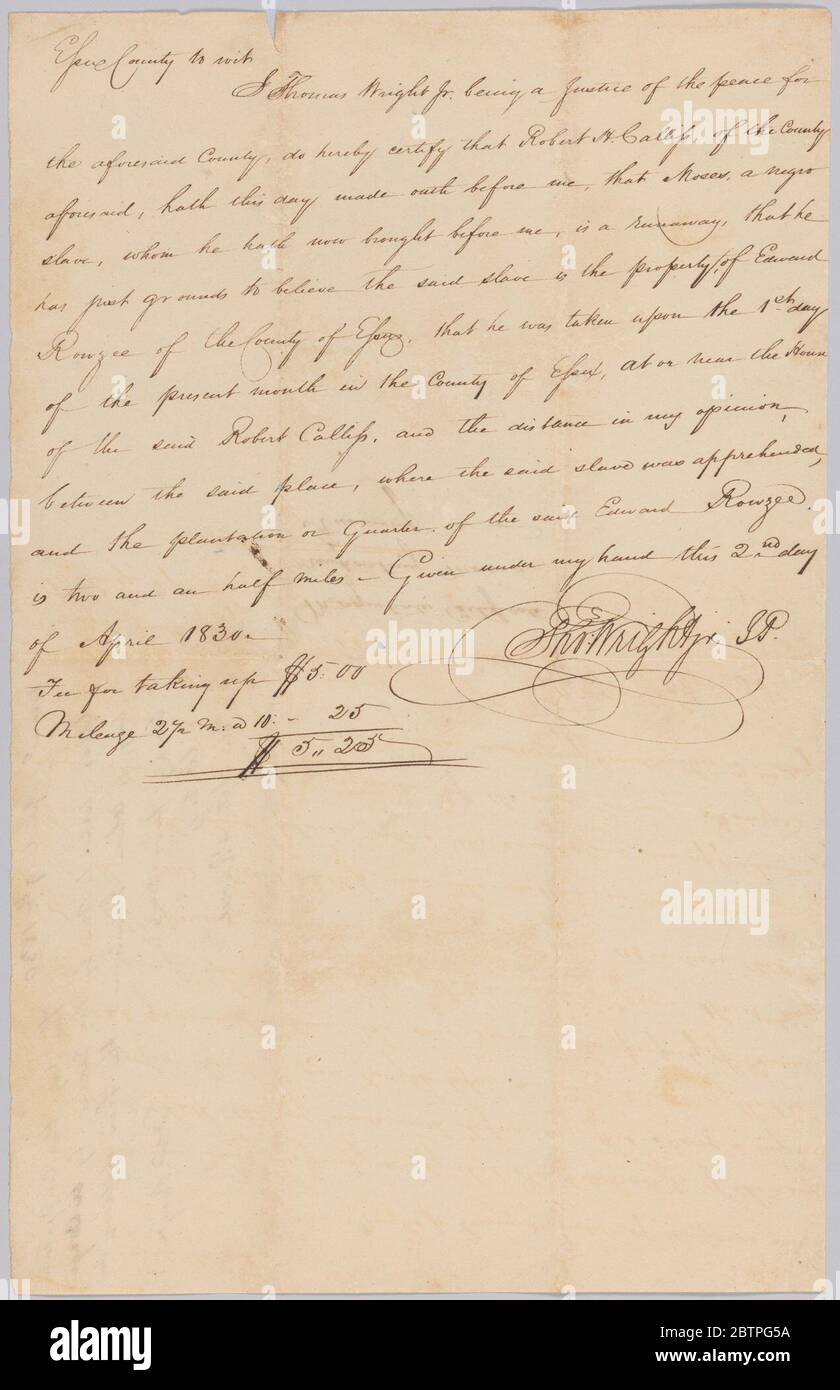 Essex County to wit
I Thomas Wright Jr. being a Justice of the peace for
the aforesaid County, do hereby certify that Robert H. Calliss, of the County
aforesaid, hath this day made oath before me, that Moses, a negro
slave, whom he hath now brought before me, is a runaway, that he
has just grounds to believe the said slave is the property, of Edward
Rowzee of the County of Essex, that he was taken upon the 1st day
of the present month in the County of Essex, at or near the House
of the said Robert Calliss, and the distance in my opinion,
between the said place, where the said slave was apprehended,
and the plantation or Quarter of the said Edward Rowzee.
is two and an half miles – Given under my hand this 2nd day
of April 1830.
Tho. Wright jr. JP.
Fee for taking up $5.00
Mileage 2½ M. a 10. – 25
$ 5,, 25
alamy
Image ID: 2BTPG5A
www.alamy.com